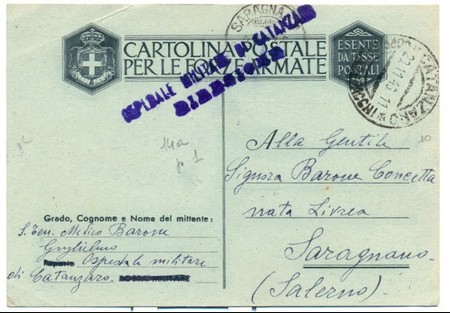 CARTOLINA POSTALE
PER LE FORZE ARMATE
ESENTE
DA TASSE
POSTALI
OSPEDALE MILITARE DI CATANZARO
DIREZIONE
SARAGNA
CATANZARO
14a
p 1
Alla Gentile
Signora Barone Concetta
nata Livrea
Saragnano
(Salerno)
Grado, Cognome e Nome del mittente:
S. Ten. Medico Barone
Guglielmo
Ospedale militare
di Catanzaro